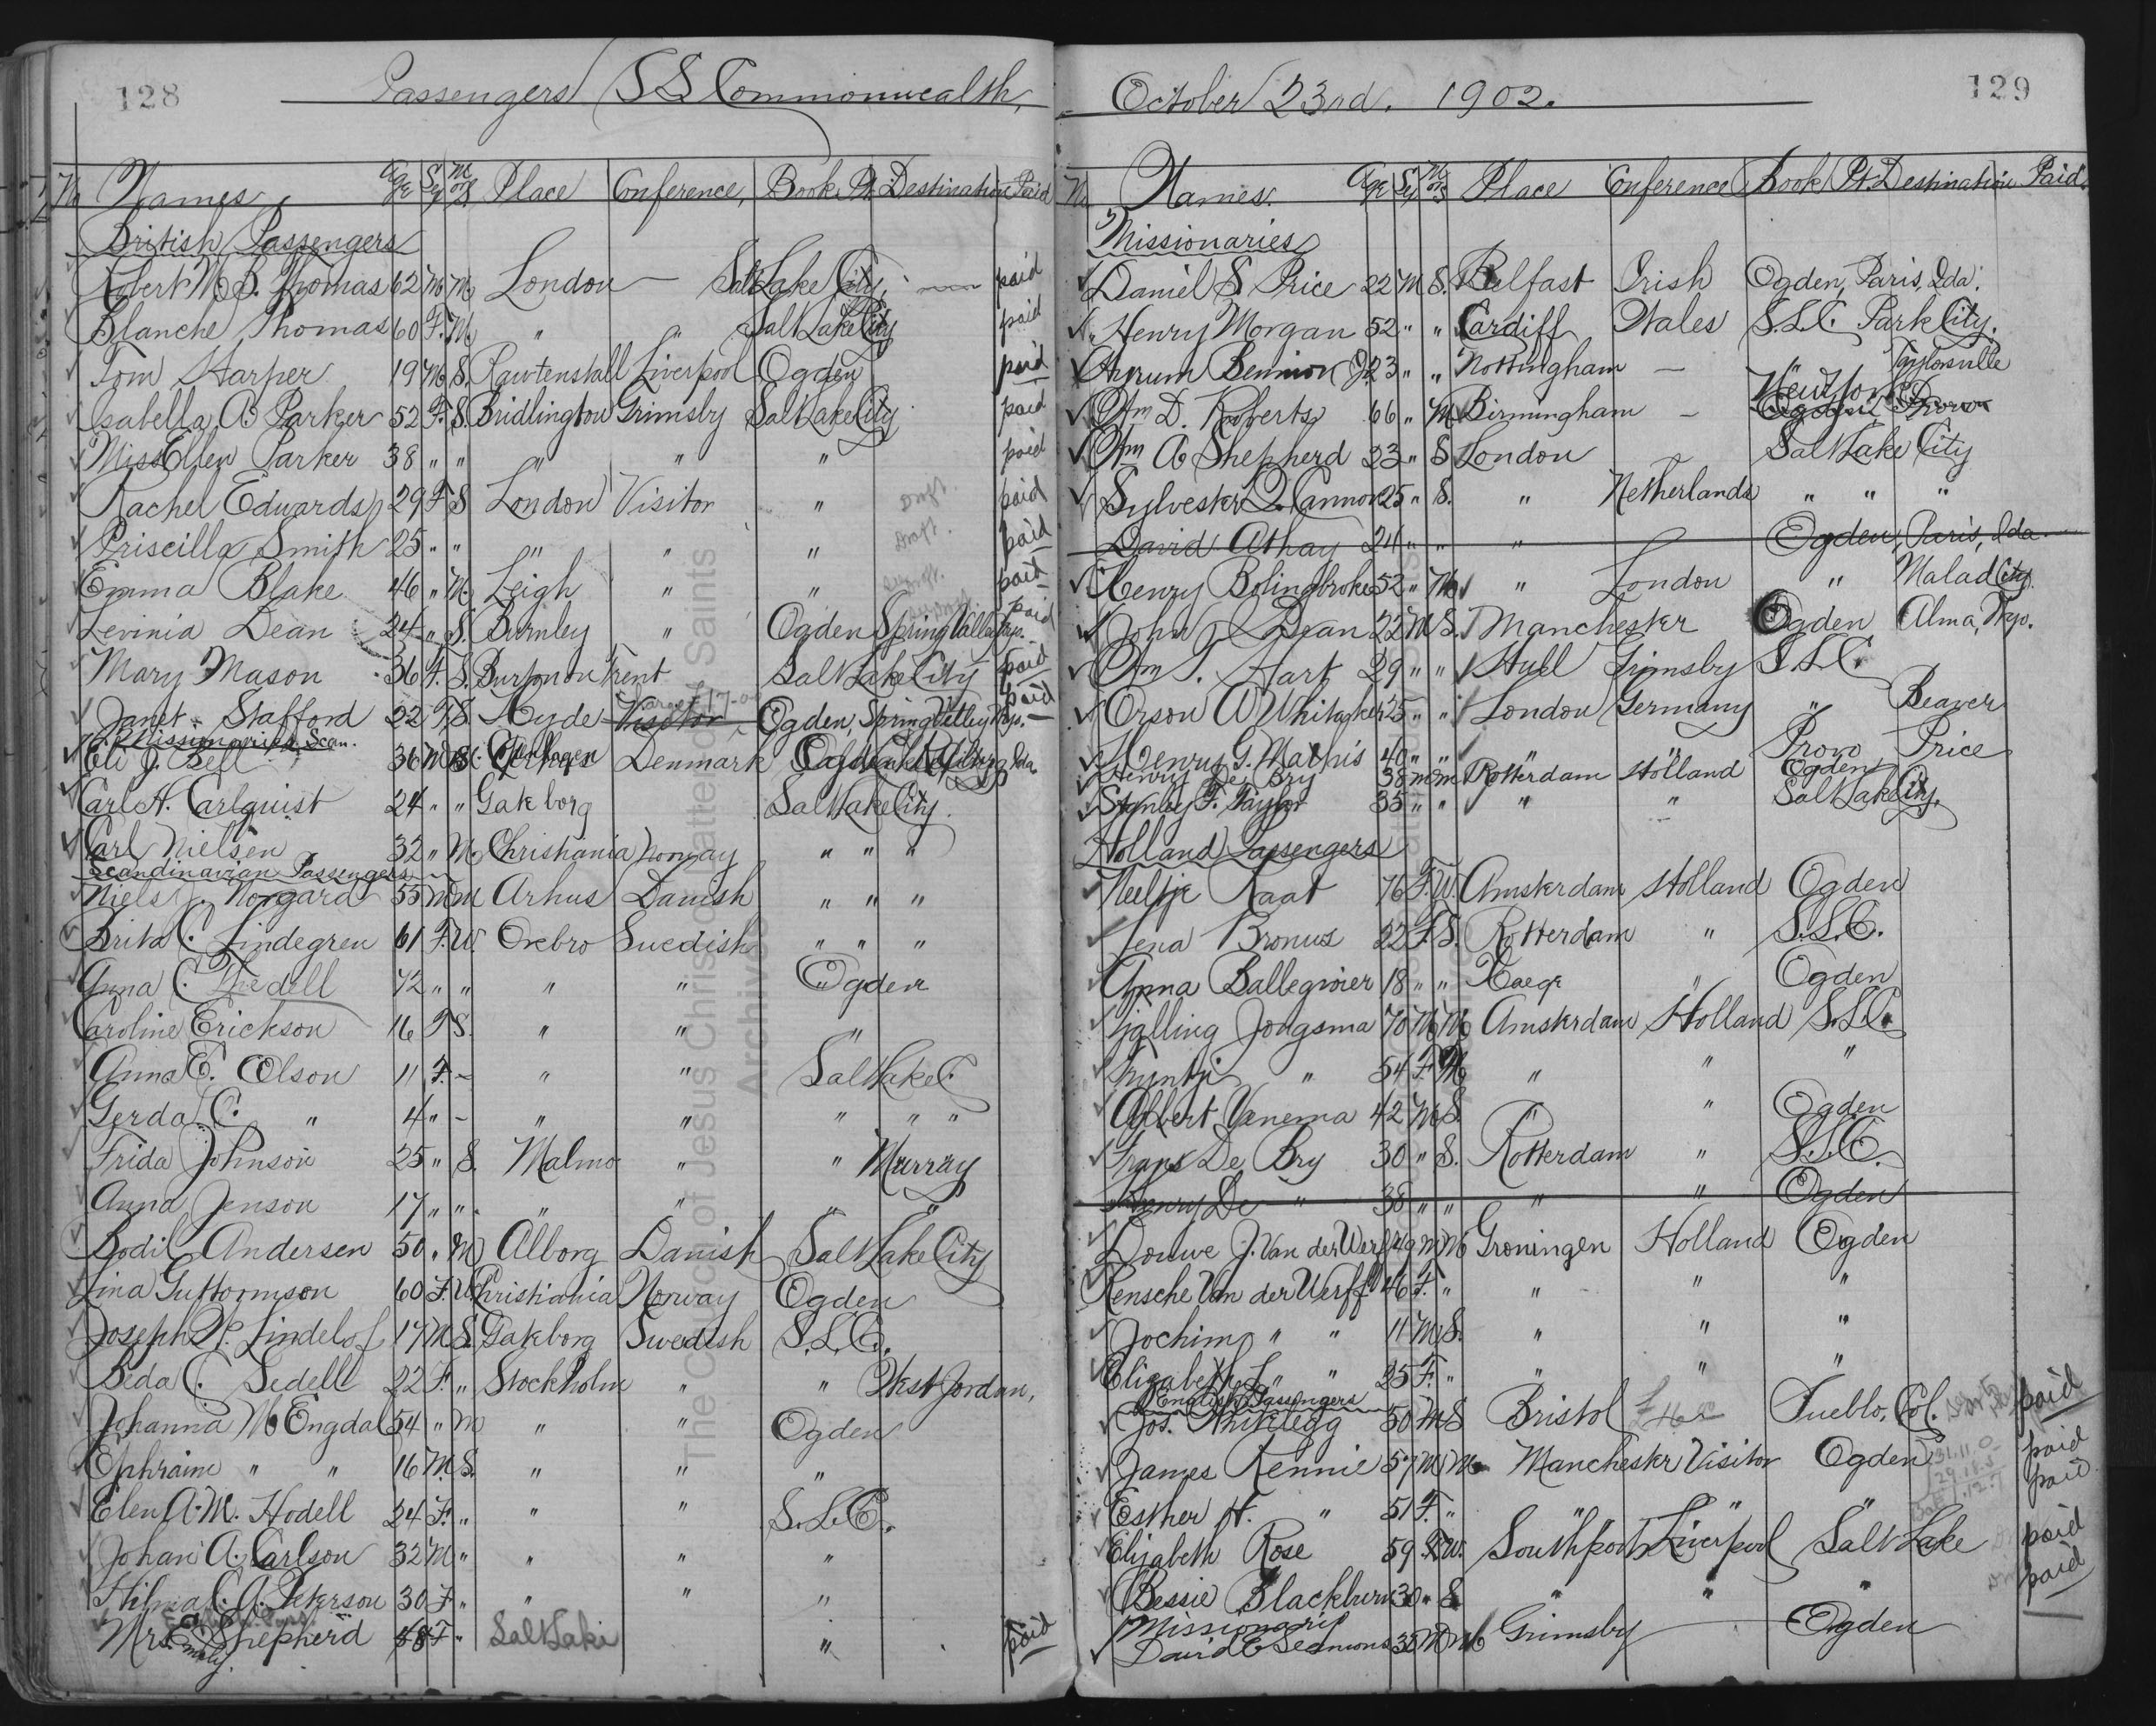 128
Passengers SS Commonwealth,
No Names Age Sex M or S Place Conference, Book Pt. Destination Paid
British Passengers
Robert M. B. Thomas 62 M M London — Salt Lake City, paid
Blanche Thomas 60 F. M " " Salt Lake City paid
Tom Harper 19 M. S. Rawtenstall Liverpool Ogden paid
Isabella A. Parker 52 F. S. Bridlington Grimsby Salt Lake City paid
Miss Ellen Parker 38 " " " " " paid
Rachel Edwards 29 F S London Visitor " Draft. paid
Priscilla Smith 25 " " " " " Draft. paid
Emma Blake 46 " M. Leigh " " paid
Levinia Dean 24 " S. Burnley " Ogden Spring Valley Wyo. paid
Mary Mason 36 F. S. Burton on Trent Salt Lake City paid
Janet Stafford 22 F S. Hyde Visitor Ogden, Spring Valley Wyo. paid
Missionaries Scan.
Eli J. Bell 36 M Denmark Ida.
Carl A. Carlquist 24 " " Gakborg Salt Lake City
Carl Nielsen 32 " M. Christiania Norway " " "
Scandinavian Passengers
Niels J. Norgard 55 M M Arhus Danish " " "
Brita C. Lindegren 61 F. W. Orebro Swedish " " "
Anna C. Thedell 72 " " " " Ogden
Caroline Erickson 16 F S. " " "
Anna E. Olson 11 F. – " " Salt Lake C.
Gerda C. " 4 " – " " " " "
Frida Johnson 25 " S. Malmo " " Murray
Anna Jenson 17 " " " " " "
Bodil Andersen 50 " M Alborg Danish Salt Lake City
Lina Guttormson 60 F. W Christiania Norway Ogden
Joseph N. Lindelof 17 M S. Gakborg Swedish S.L.C.
Beda C. Sedell 22 F. " Stockholm " " West Jordan,
Johanna M Engdal 54 " M " " Ogden
Ephraim " " 16 M. S. " " "
Elen A. M. Hodell 24 F. " " " S.L.C.
Johan A. Carlson 32 M " " " "
Hilma C. A. Peterson 30 F " " " "
Mrs Emily Shepherd F " Salt Lake " paid
129
October 23rd. 1902.
No Names. Age Sex M or S Place Conference Book Pt. Destination Paid.
Missionaries
Daniel S Price 22 M S. Belfast Irish Ogden, Paris, Ida.
Henry Morgan 52 " " Cardiff Wales S.L.C. Park City.
Hyrum Bennion Jr. 23 " " Nottingham — " Taylorsville
Wm D. Roberts 66 " M Birmingham – Provo
Wm A Shepherd 23 " S London Salt Lake City
Sylvester Q. Cannon 25 " S. " Netherlands " " "
David Athay 24 " " " Ogden, Paris, Ida.
Henry Bolingbroke 52 " M " London " Malad City
John L Dean 22 M S. Manchester Ogden Alma, Wyo.
Wm T. Hart 29 " " Hull Grimsby S.L.C.
Orson A Whitaker 25 " " London Germany " Beaver
Henry G. Mathis 40 " " " " Provo Price
Henry De Bry 38 m m Rotterdam Holland Ogden
Stanley F. Taylor 35 " " " " Salt Lake City.
Holland Passengers
Neeltje Kaat 76 F. W. Amsterdam Holland Ogden
Lena Bronus 22 F. S. Rotterdam " S.L.C.
Anna Ballegoier 18 " " Haege " Ogden
Tjalling Jongsma 70 M M Amsterdam Holland S.L.C.
" 54 F. M " " "
Albert Venema 42 M S. " " Ogden
Frans De Bry 30 " S. Rotterdam " S.L.C.
Henry De " 38 " " " " Ogden
Douwe J. Van der Werff 49 M M Groningen Holland Ogden
Rensche Van der Werff 46 F. " " " "
Jochim " " 11 M S. " " "
Elizabeth L " " 25 F. " " " "
English Passengers
Jos. 50 M S Bristol Pueblo, Col. paid
James Rennie 57 M M Manchester Visitor Ogden paid
Esther H. " 51 F. " " " " paid
Elizabeth Rose 59 F. W. Southport Liverpool Salt Lake paid
Bessie Blackburn 30 " S " " " paid
Missionary
David C Seamons 35 M M Grimsby — Ogden
The Church of Jesus Christ of Latter-day Saints
Archives